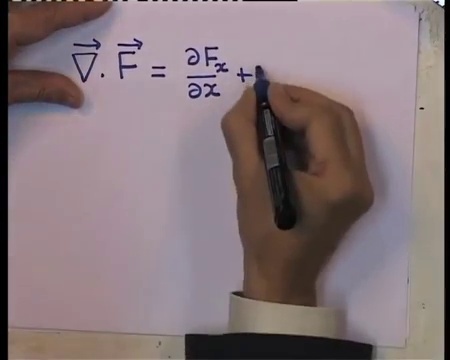 ∇⃗ · F⃗ = ∂Fₓ/∂x +